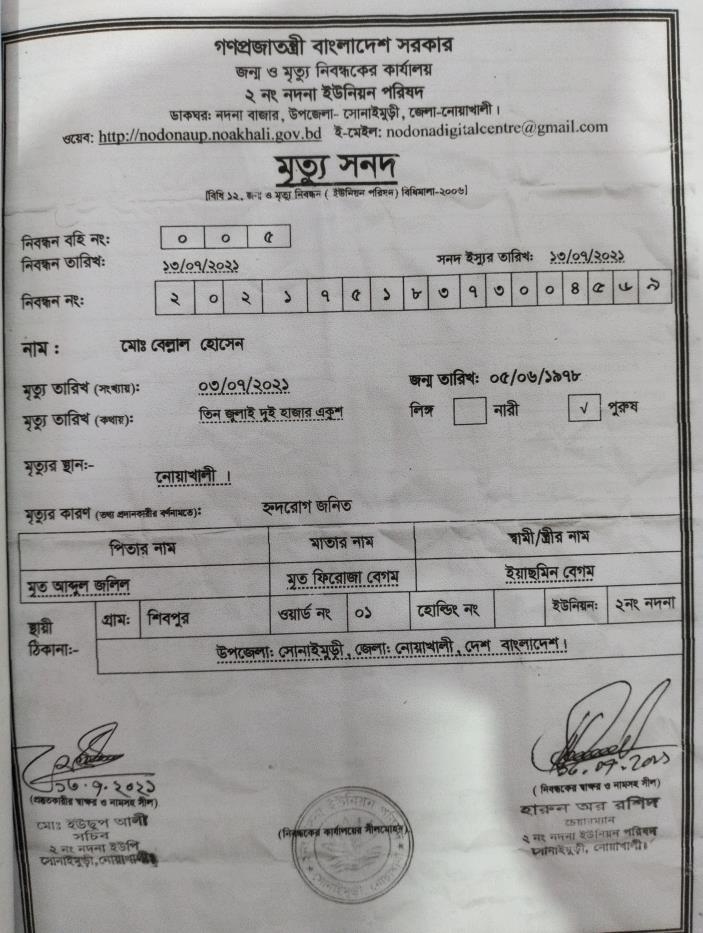 গণপ্রজাতন্ত্রী বাংলাদেশ সরকার
জন্ম ও মৃত্যু নিবন্ধকের কার্যালয়
২ নং নদনা ইউনিয়ন পরিষদ
ডাকঘর: নদনা বাজার, উপজেলা- সোনাইমুড়ী, জেলা-নোয়াখালী।
ওয়েব: http://nodonaup.noakhali.gov.bd ই-মেইল: nodonadigitalcentre@gmail.com
মৃত্যু সনদ
[বিধি ১২, জন্ম ও মৃত্যু নিবন্ধন ( ইউনিয়ন পরিষদ) বিধিমালা-২০০৬]
নিবন্ধন বহি নং: ০ ০ ৫
নিবন্ধন তারিখ: ১৩/০৭/২০২১ সনদ ইস্যুর তারিখ: ১৩/০৭/২০২১
নিবন্ধন নং: ২ ০ ২ ১ ৭ ৫ ১ ৮ ৩ ৭ ৩ ০ ০ ৪ ৫ ৬ ৯
নাম : মোঃ বেল্লাল হোসেন
মৃত্যু তারিখ (সংখ্যায়): ০৩/০৭/২০২১ জন্ম তারিখ: ০৫/০৬/১৯৭৮
মৃত্যু তারিখ (কথায়): তিন জুলাই দুই হাজার একুশ লিঙ্গ নারী √ পুরুষ
মৃত্যুর স্থান:-
নোয়াখালী ।
মৃত্যুর কারণ (তথ্য প্রদানকারীর বর্ণনামতে): হৃদরোগ জনিত
পিতার নাম মাতার নাম স্বামী/স্ত্রীর নাম
মৃত আব্দুল জলিল মৃত ফিরোজা বেগম ইয়াছমিন বেগম
স্থায়ী ঠিকানা:- গ্রাম: শিবপুর ওয়ার্ড নং ০১ হোল্ডিং নং ইউনিয়ন: ২নং নদনা
উপজেলা: সোনাইমুড়ী, জেলা: নোয়াখালী, দেশ বাংলাদেশ।
১৩.৭.২০২১
(প্রস্তুতকারীর স্বাক্ষর ও নামসহ সীল)
মোঃ ইউছুপ আলী
সচিব
২ নং নদনা ইউপি
সোনাইমুড়ী, নোয়াখালী।
(নিবন্ধকের কার্যালয়ের সীলমোহর)
১৩.০৭.২০২১
( নিবন্ধকের স্বাক্ষর ও নামসহ সীল)
হারুন অর রশিদ
চেয়ারম্যান
২ নং নদনা ইউনিয়ন পরিষদ
সোনাইমুড়ী, নোয়াখালী।